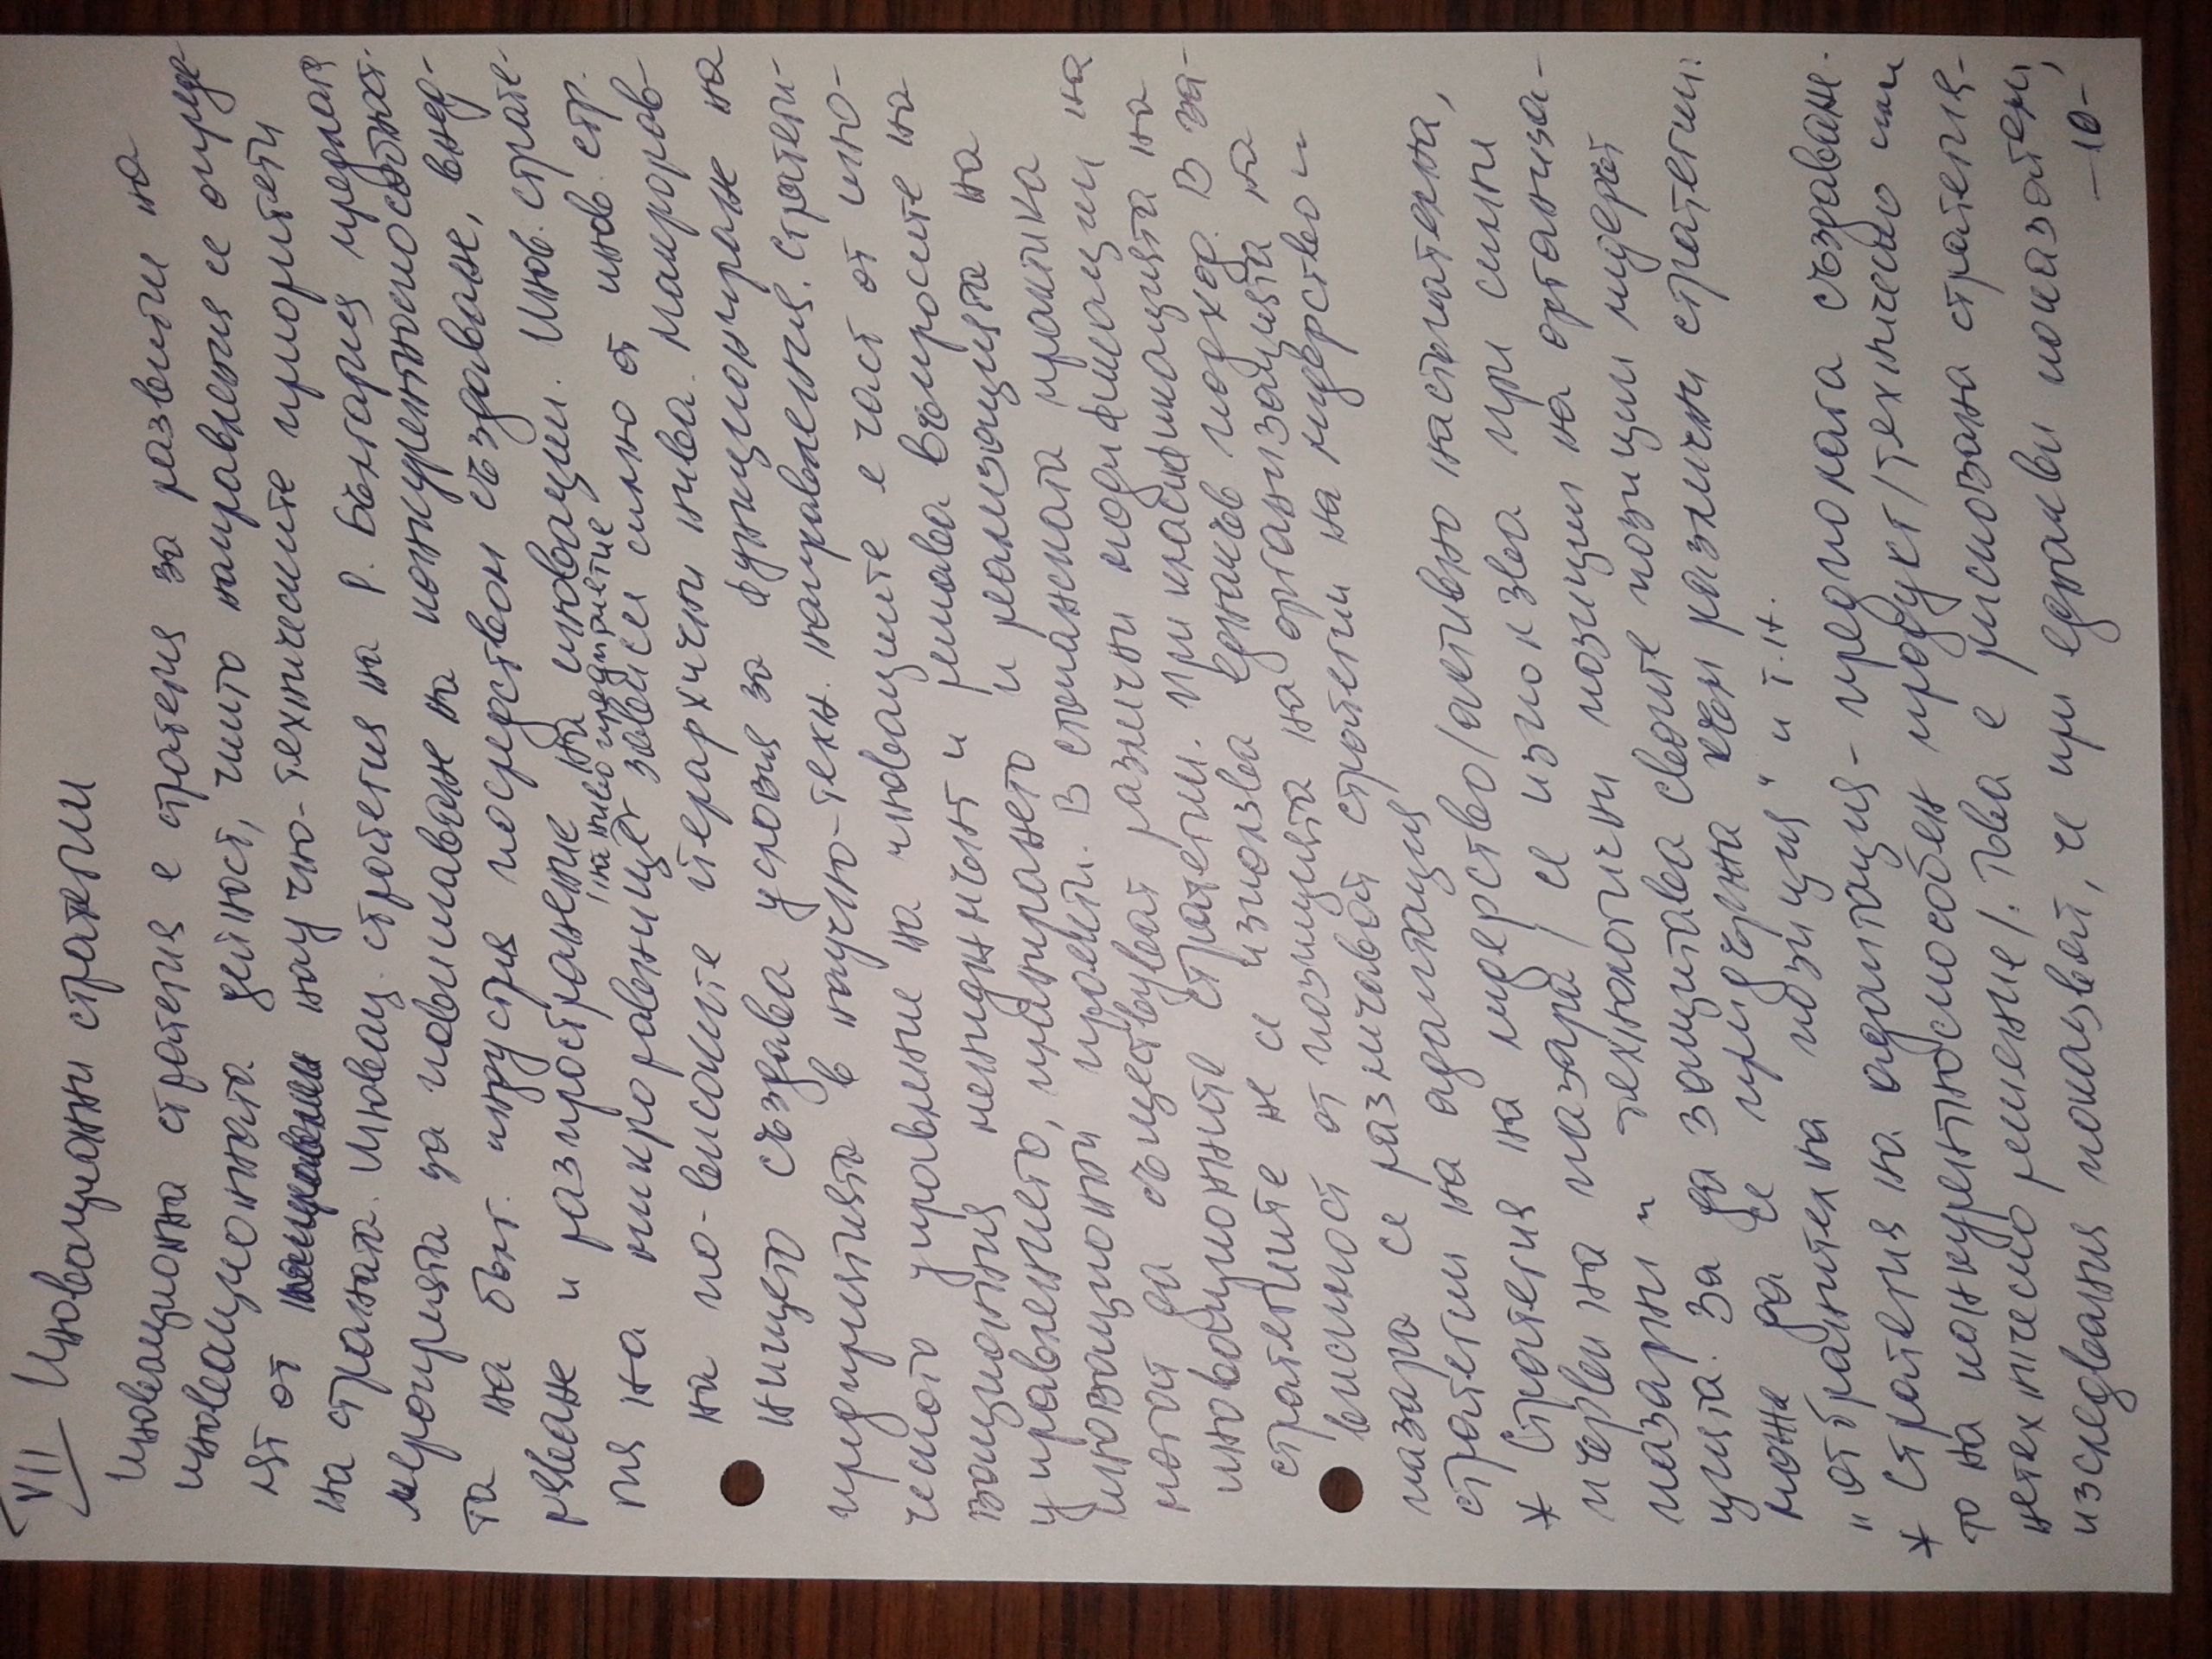 VII Иновационни стратегии
Иновационна стратегия е стратегия за развити на
иновационната дейност, чиито направления се опреде
лят от научно-техническите приоритети
на страната. Иновац. стратегия на Р. България предлага
мероприята за повишаване на конкурентноспособност-
та на бълг. индустрия посредством създаване, внед-
ряване и разпространение на иновации. Инов. страте-
гия на микроравнище /на ниво предприятие зависи силно от инов. стр.
на по-високите йерархични нива. Макрорав-
нището създава условия за функциониране на
предприятията в научно-техн. направления. Стратеги-
ческото управление на иновациите е част от ино-
вационния мениджмънт и решава въпросите на
управлението, планирането и реализацията на
иновационни проекти. В стопанската практика
могат да съществуват различни модификации на
иновационните стратегии. При класификацията на
стратегиите не се използва еднакъв подход. В за-
висимост от позицията на организацията на
пазара се различават стратегии на лидерство и
стратегии на адаптация
* Стратегия на лидерство/активно настъпателна,
лидер на пазара/ се използва при силни
пазарни и технологични позиции на организа-
цията. За да защитава своите позиции лидерът
може да се придържа към различни стратегии:
"отбранителна позиция" и т.н.
* Стратегия на адаптация - предполага създаване-
то на конкурентноспособен продукт/техническо или
нетехническо решение/. Това е рискована стратегия-
изследвания показват, че при еднакви показатели,
-10-